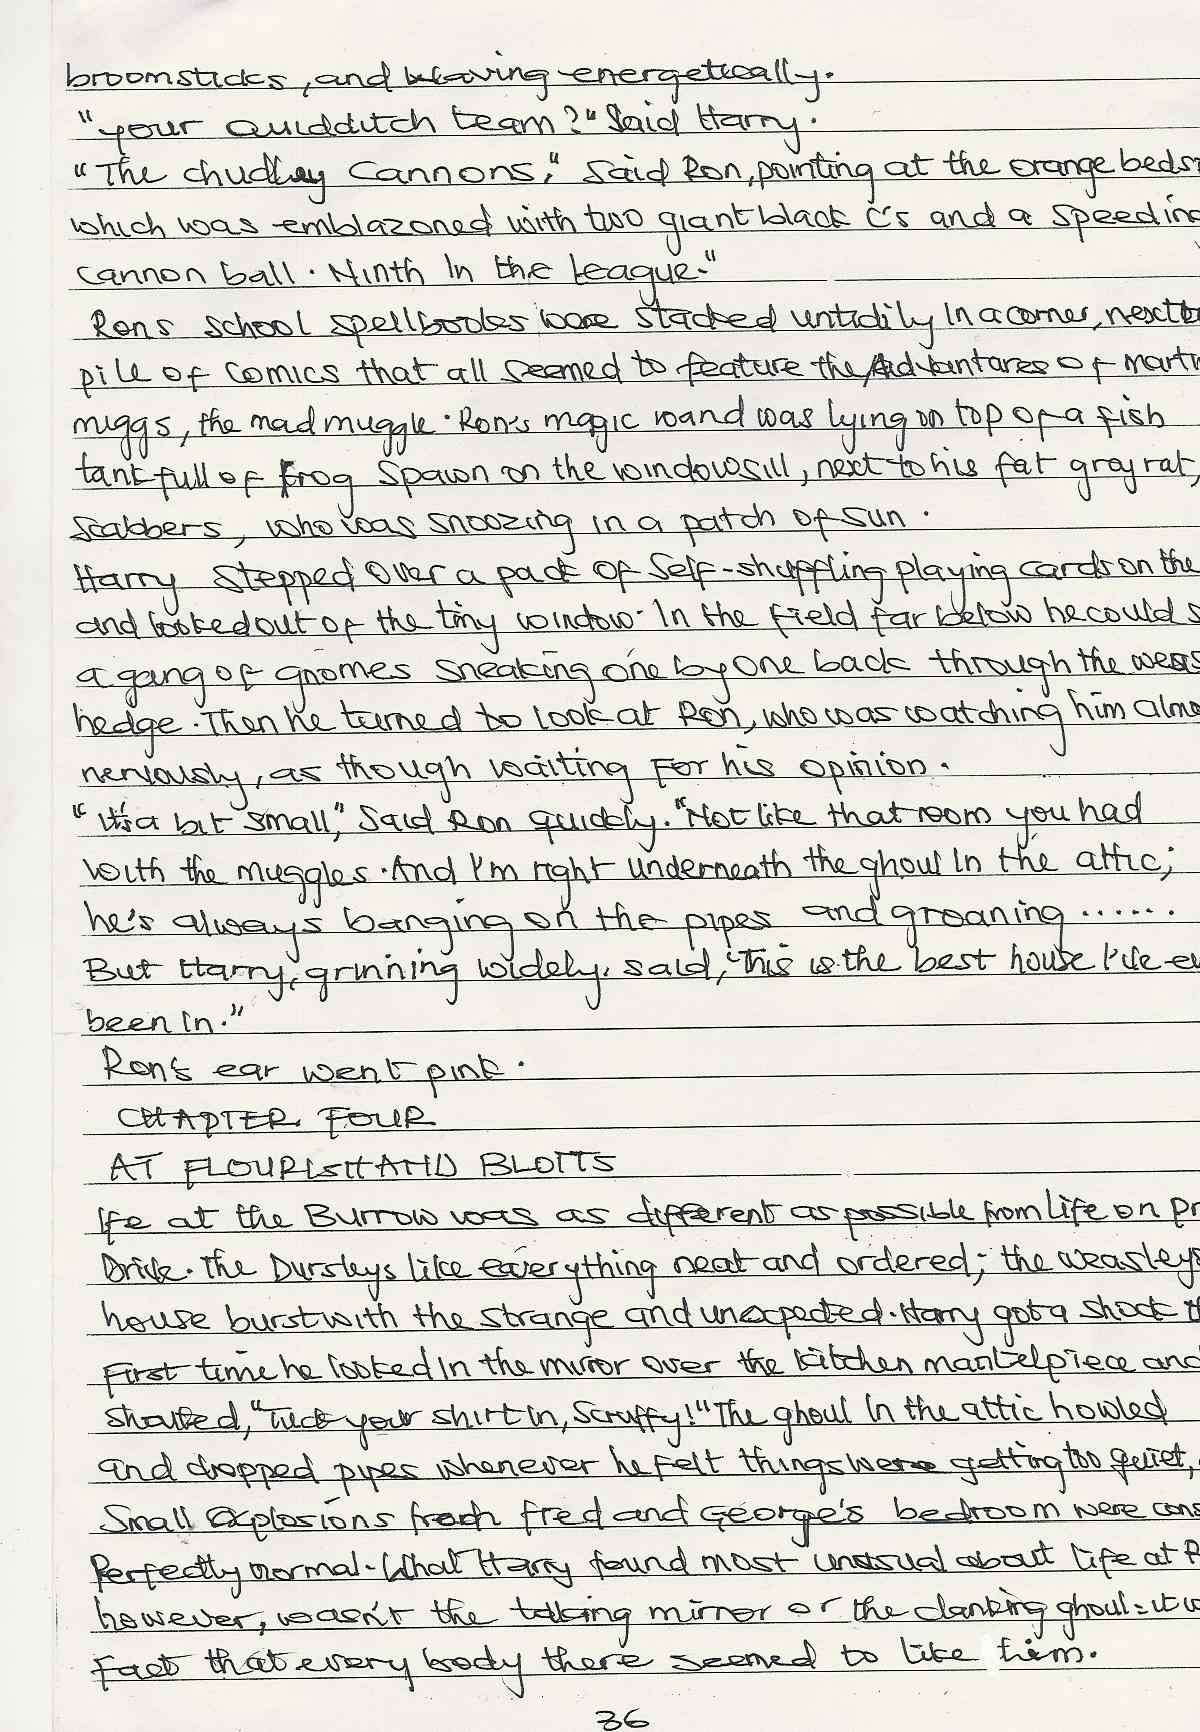 broomsticks, and waving energetically.
"your Quidditch team?" Said Harry.
"The chudley Cannons," Said Ron, pointing at the orange beds
which was emblazoned with two giant black C's and a speedin
cannon ball. Ninth In the League."
Rons school spellbooks were stacked untidily In a corner, next to
pile of comics that all seemed to feature the Advantares of mart
miggs, the mad muggle. Ron's magic wand was lying on top of a fish
tank full of frog Spawn on the windowsill, next to his fat gray rat,
scabbers, who was snoozing in a patch of sun.
Harry stepped over a pack of Self-shuffling playing cards on the
and looked out of the tiny window. In the field far below he could s
a gang of gnomes sneaking one by one back through the weas
hedge. Then he turned to look at Ron, who was watching him almo
nervously, as though waiting For his opinion.
"It's a bit small," Said Ron quickly. "Not like that room you had
with the muggles. And I'm right underneath the ghoul In the attic;
he's always banging on the pipes and groaning ......
But Harry, grinning widely, said, "This is the best house I've ev
been In."
Ron's ear went pink.
CHAPTER FOUR
AT FLOURISH AND BLOTTS
Ife at the Burrow was as different as possible from life on Pr
Drive. The Dursleys like everything neat and ordered; the weasleys
house burst with the strange and unexpected. Harry got a shock th
First time he looked In the mirror over the kitchen mantelpiece and
shouted, "Tuck your shirt in, Scruffy!" The ghoul In the attic howled
and dropped pipes whenever he felt things were getting too quiet,
Small explosions from fred and George's bedroom were cons
Perfectly normal. What Harry found most unusual about life at R
however, wasn't the talking mirror or the clanking ghoul: it w
Fact that every body there seemed to like him.
36